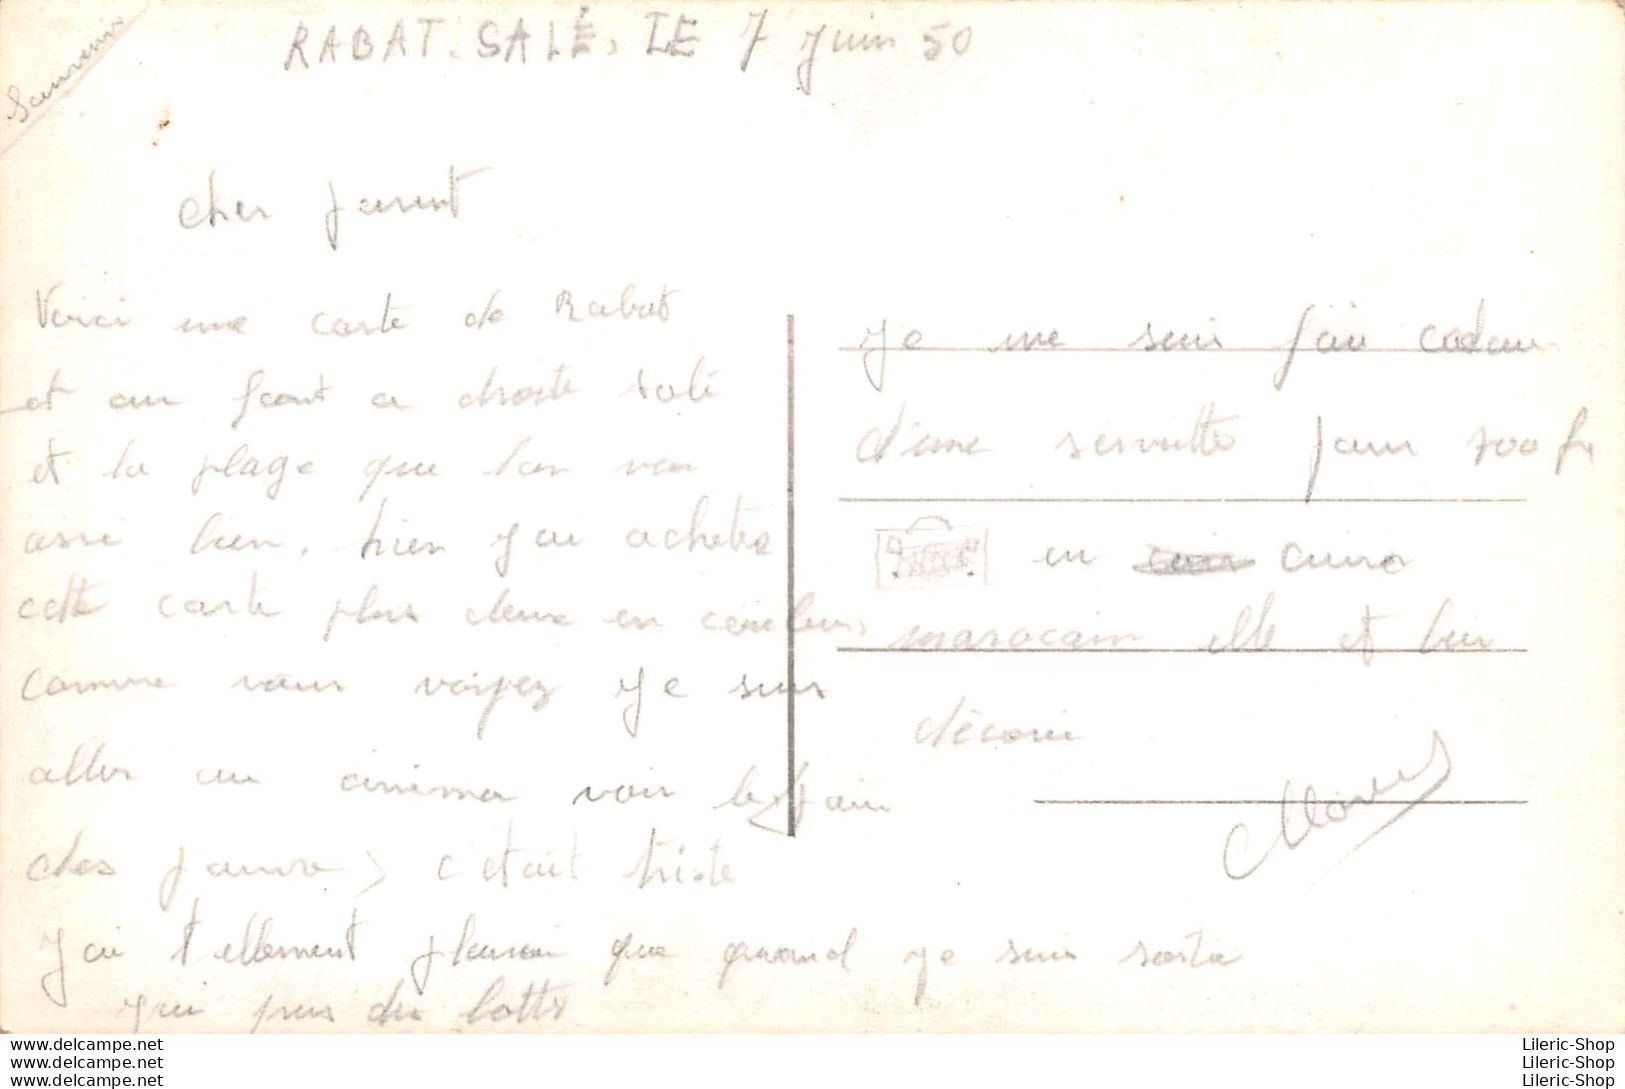 Souvenir
RABAT. SALÉ, LE 7 Juin 50
cher parent
Voici une carte de Rabat
et au font a droite salé
et la plage que lon voi
assé bien, hier j'ai acheter
cette carte plus deux en couleur,
comme vous voiyez je suis
aller au cinéma voir le pain
des pauvre, c'etait triste
j'ai tellement pleurai que quand je suis sortie
j'ai pris du lotte
je me suis fai cadau
d'une serviette pour 700 fr
en cuire
marocain elle et bien
décorie
www.delcampe.net
www.delcampe.net
www.delcampe.net
Lileric-Shop
Lileric-Shop
Lileric-Shop